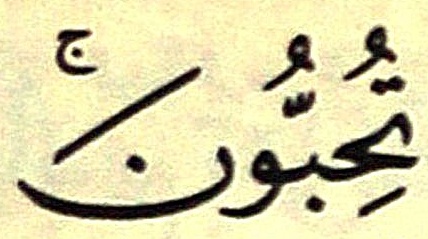 تُحِبُّونَ ۚ